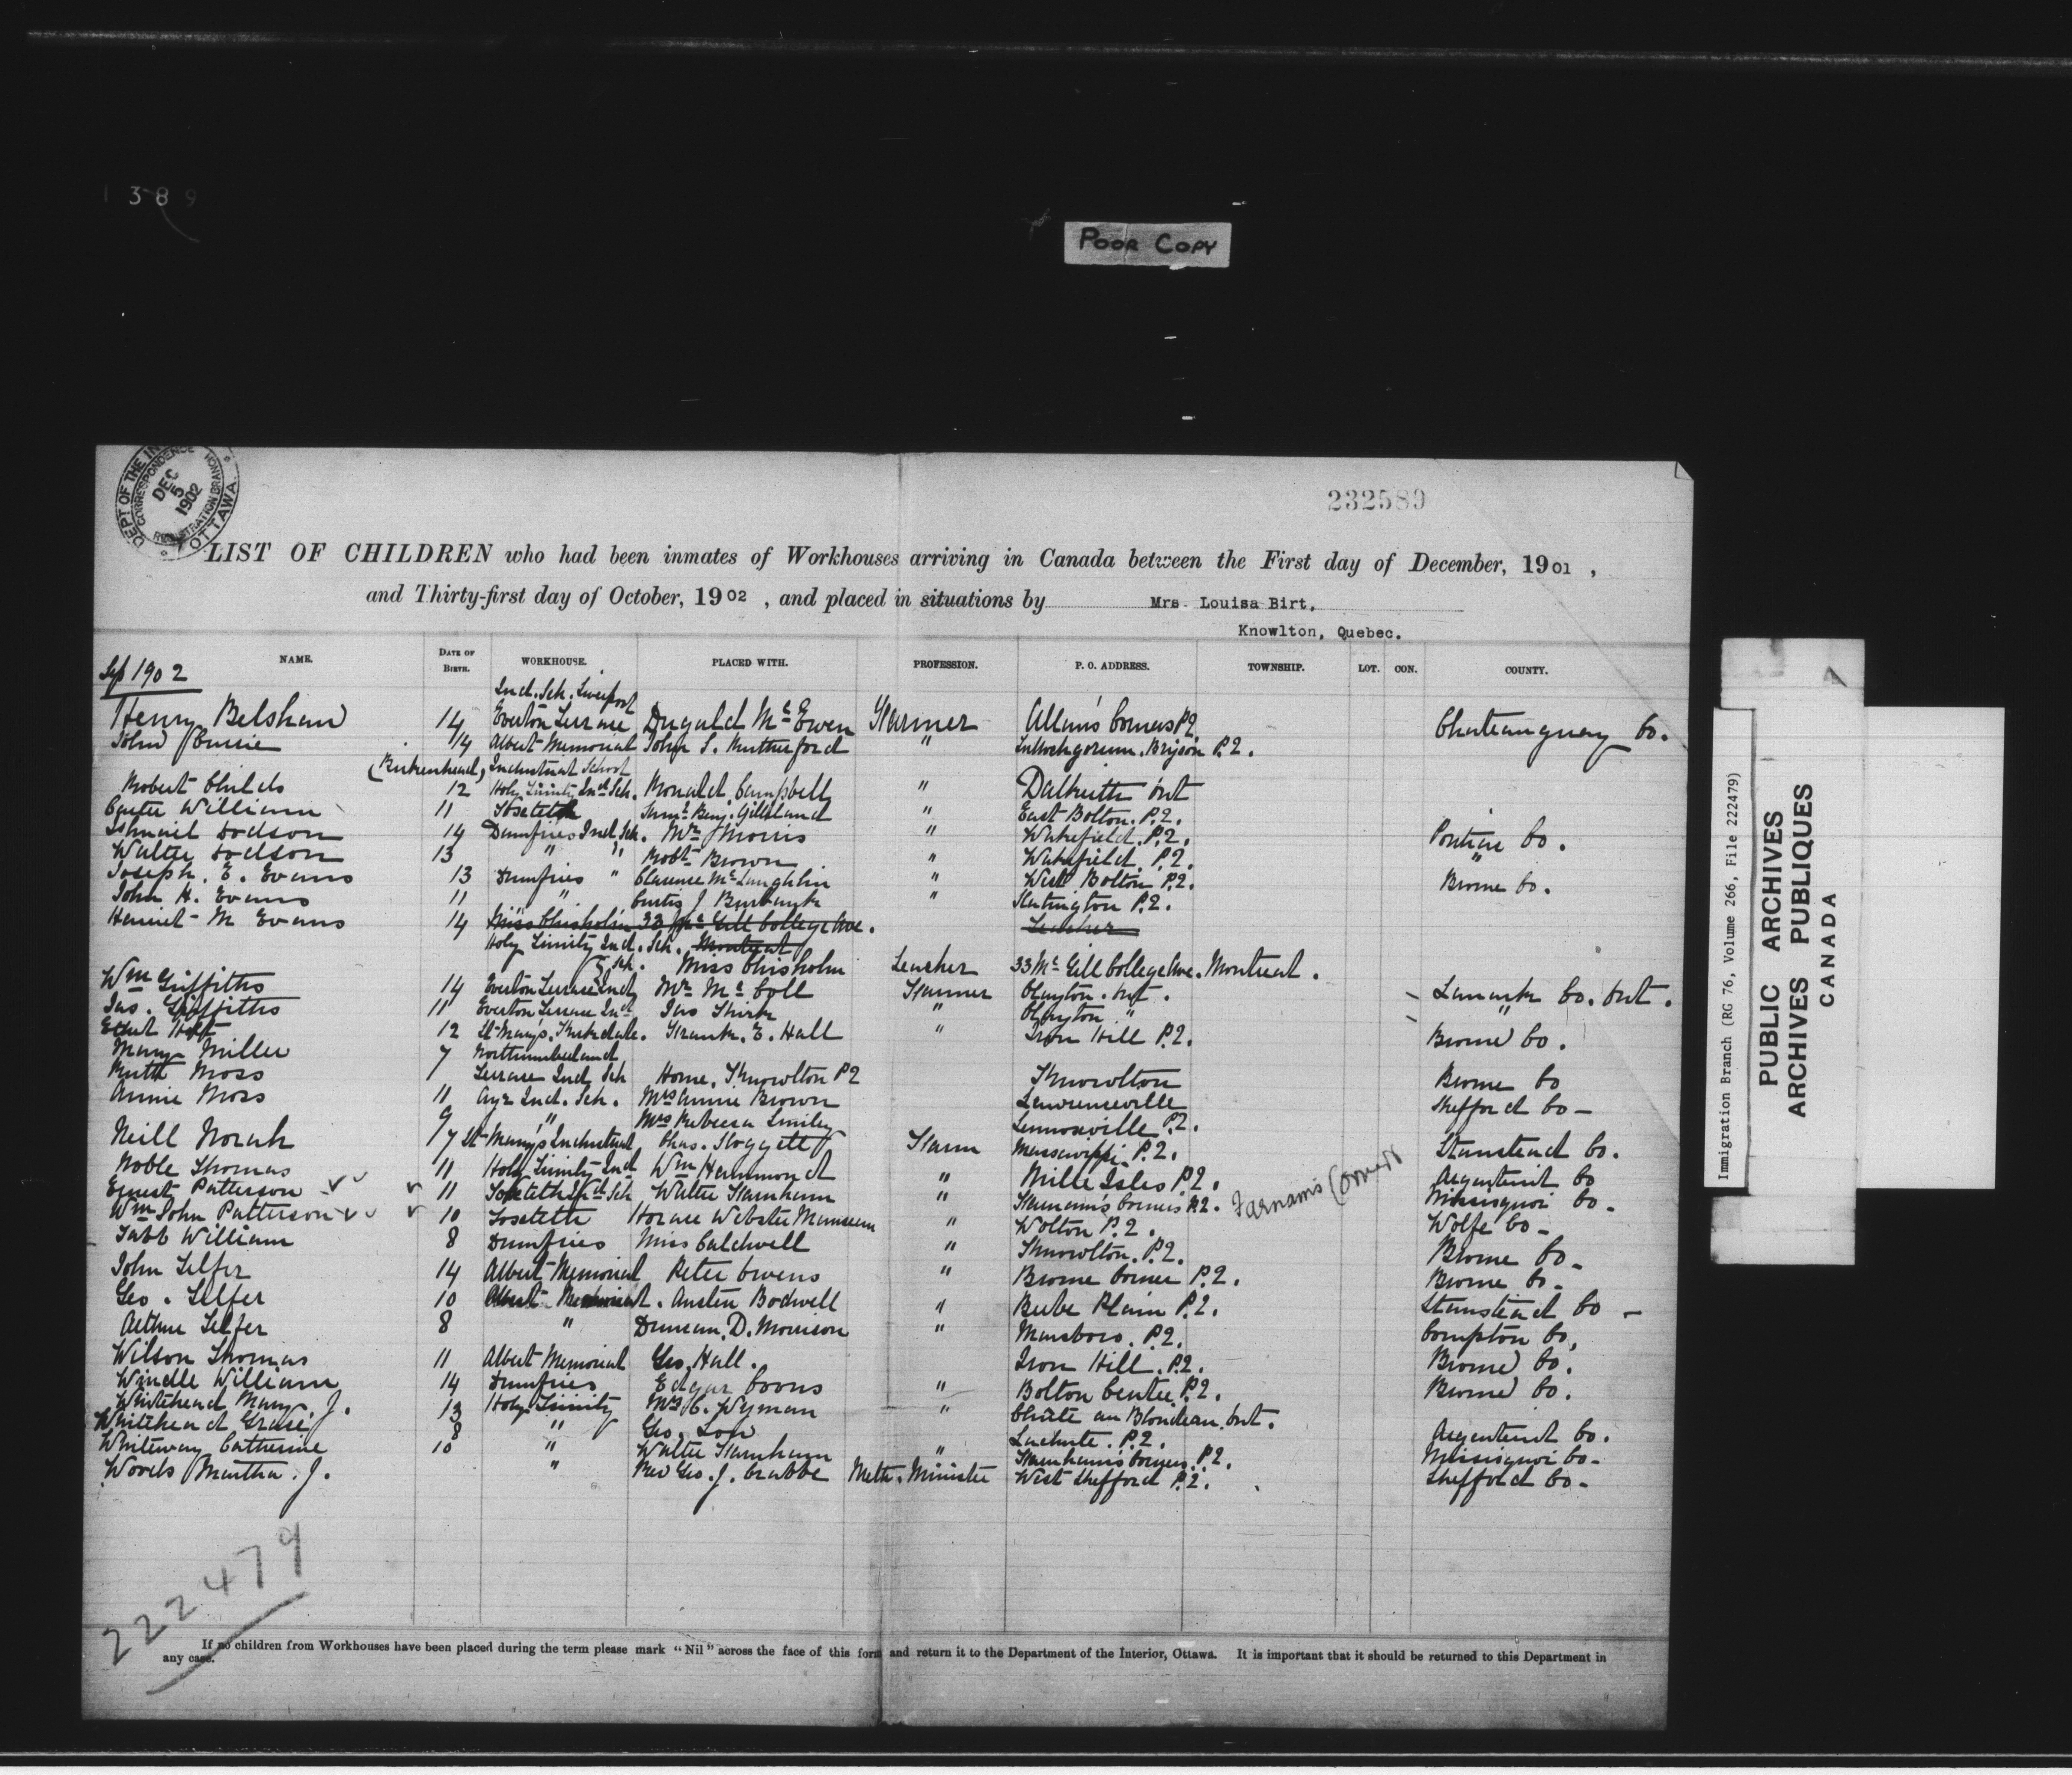 1389
POOR COPY
DEPT OF THE IN
CORRESPONDENCE
DEC 5 1902
REGISTRATION BRANCH
OTTAWA.
232589
LIST OF CHILDREN who had been inmates of Workhouses arriving in Canada between the First day of December, 1901 ,
and Thirty-first day of October, 1902 , and placed in situations by Mrs. Louisa Birt,
Knowlton, Quebec.
NAME. DATE OF BIRTH. WORKHOUSE. PLACED WITH. PROFESSION. P. O. ADDRESS. TOWNSHIP. LOT. CON. COUNTY.
Sep 1902
Ind. Sch. Liverpool
Henry Belshaw 14 Everton Terrace Dugald Mc Ewen Farmer Allan's Corners P2. Chateauguay Co.
John Currie 14 Albert Memorial John S. Rutherford " Bryson P.2.
(Birkenhead, Industrial School
Robert Childs 12 Holy Trinity Ind Sch. Ronald Campbell " Dalkeith Ont
Carter William 11 Toxteth Benj. Gilliland " East Bolton. P.2.
Ishmail Dodson 14 Dumfries Ind. Sch. Mr Morris " Wakefield. P.2. Pontiac Co.
Walter Dodson 13 " " Robt Brown " Wakefield P.2. "
Joseph. E. Evans 13 Dumfries " Clarence Mc Laughlin " West Bolton P.2. Brome Co.
John H. Evans 11 " Curtis J Burbank " P.2.
Harriet M Evans 14 Miss Chisholm 33 Mc Gill College Ave. Teacher
Holy Trinity Ind. Sch. Montreal
Sch. Miss Chisholm Teacher 33 Mc Gill College Ave. Montreal.
Wm Griffiths 14 Everton Terrace Ind Mr Mc Coll Farmer Clayton. Ont. Lanark Co. Ont.
Jas. Griffiths 11 Everton Terrace Ind Jas " Clayton " "
Ethel Holt 12 St Mary's, Kirkdale. Frank. E. Hall " Iron Hill P.2. Brome Co.
Mary Miller 7 Northumberland
Ruth Moss Terrace Ind Sch Home, Knowlton P2 Knowlton Brome Co
Annie Moss 11 Ind. Sch. Mrs Annie Brown Lawrenceville Shefford Co -
9 " Mrs Rebecca Smiley Lennoxville P.2.
Neill Norah 7 St Mary's Industrial Chas. Farm Massawippi P.2. Stanstead Co.
Noble Thomas 11 Holy Trinity Ind Wm Hammond " Mille Isles P2. Argenteuil Co
Ernest Patterson 11 Toxteth Ind Sch Walter Farnham " Farnam's Corners P.2. Farnam's Corners Missisquoi Co.
Wm John Patterson 10 Toxteth Horace Webster " Wolton P.2. Wolfe Co -
Tabb William 8 Dumfries Miss Caldwell " Knowlton. P.2. Brome Co.
John Telfer 14 Albert Memorial Peter Owens " Brome Corner P.2. Brome Co.
Geo. Telfer 10 Albert Memorial. Austin Bodwell " Beebe Plain P.2. Stanstead Co -
Arthur Telfer 8 " Duncan. D. Morrison " Marsboro. P.2. Compton Co,
Wilson Thomas 11 Albert Memorial Geo. Hall. Iron Hill. P.2. Brome Co.
Windle William 14 Dumfries Edgar Coons " Bolton Centre P.2. Brome Co.
Whitehead Mary. J. 13 Holy Trinity Mrs C. Wyman " Chûte au Blondeau. Ont.
Whitehead Grace 8 " Geo. Low Lachute. P.2. Argenteuil Co.
Whiteway Catherine 10 " Walter Farnham " Farnham's Corners. P.2. Missisquoi Co -
Words Martha. J. " Rev Geo. J. Crabbe Meth. Minister West Shefford P.2. Shefford Co -
222479
If no children from Workhouses have been placed during the term please mark "Nil" across the face of this form and return it to the Department of the Interior, Ottawa. It is important that it should be returned to this Department in
any case.
Immigration Branch (RG 76, Volume 266, File 222479)
PUBLIC ARCHIVES
ARCHIVES PUBLIQUES
CANADA